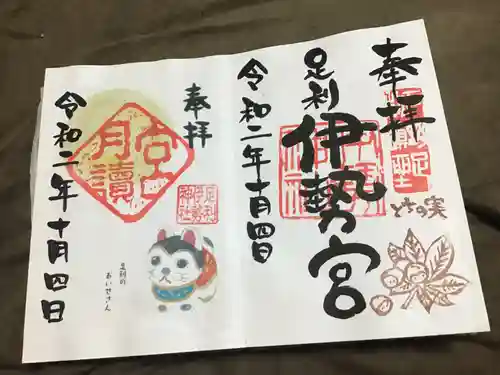 奉拝
足利
伊勢宮
とちの実
令和二年十月四日
奉拝
月讀宮
足利
伊勢
神社
足利の
おいせさん
令和二年十月四日